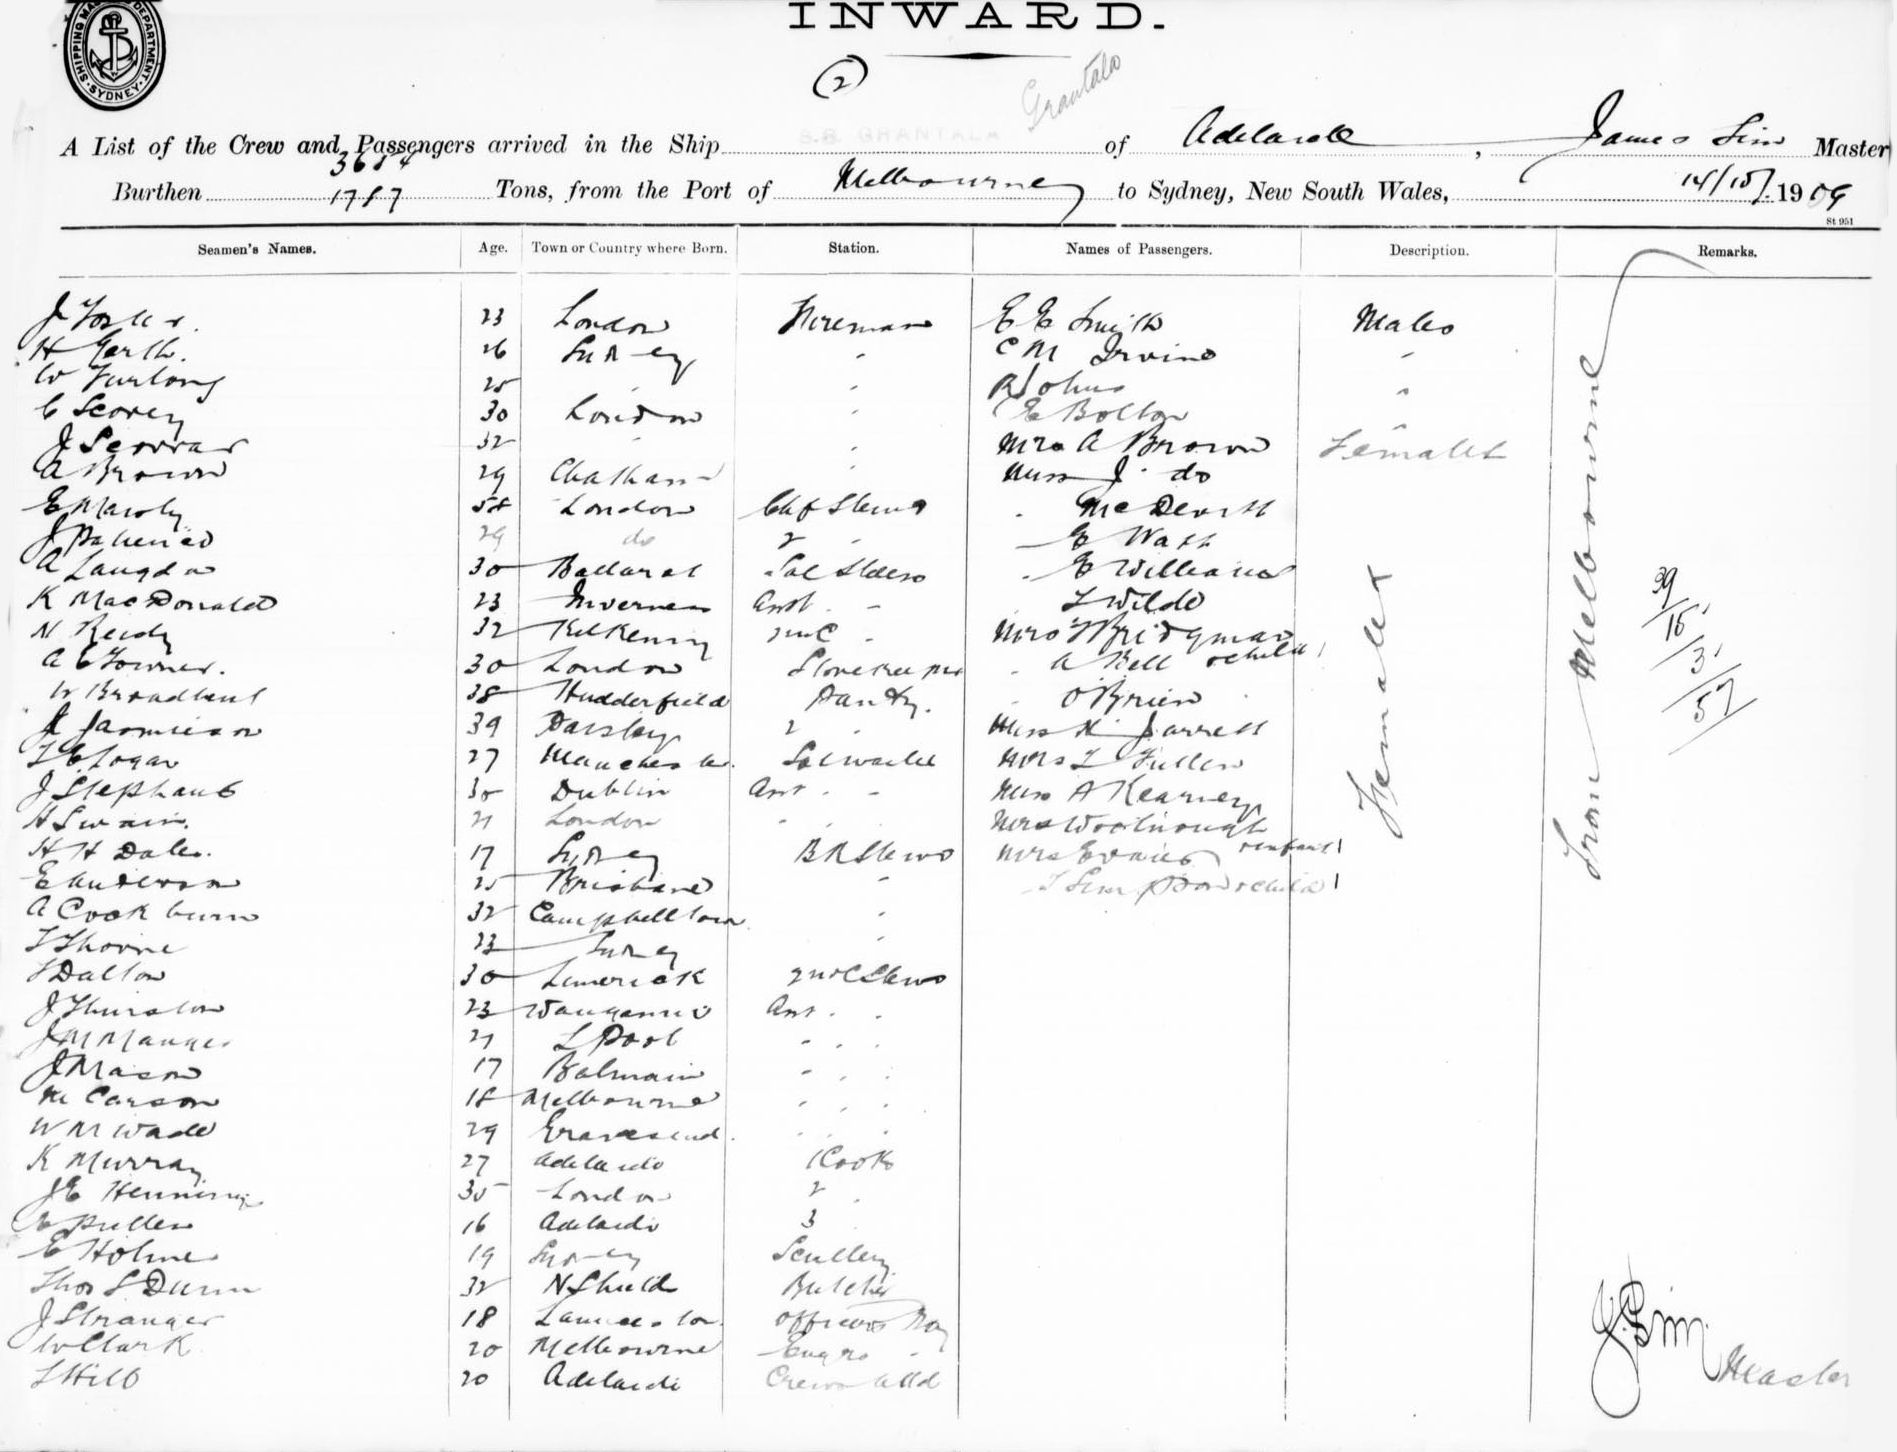 SHIPPING MASTER'S DEPARTMENT. SYDNEY.
INWARD.
(2)
Grantala
A List of the Crew and Passengers arrived in the Ship S.S. GRANTALA of Adelaide, James Sim Master
3684
Burthen 1787 Tons, from the Port of Melbourne to Sydney, New South Wales, 14/10/1909
St 951
Seamen's Names. Age. Town or Country where Born. Station. Names of Passengers. Description. Remarks.
J 23 London Fireman E E Smith Males
H Garth. 26 Sydney " C M Irvine "
W Furlong 25 " " R Johns "
C Scorey 30 London " E Bolton "
J 32 " " Mrs A Brown Females
A Brown 29 Chatham " Miss J do
E 58 London Chf Stewd " McDevitt
J 29 do 2 " E
A Langdon 30 Ballarat Sal Stders " E Williams
K MacDonald 23 Inverness Asst " " L Wilde
N Reidy 32 Kilkenny " Mrs Bridgman
A E Towner. 30 London Storekeeper " A Bell & child 1
W Broadbent 38 Hudderfield Pantry. " O'Brien
J Jamieson 39 2 " Miss Jarrett
T E Logan 27 Manchester. Mrs L Fuller
J Stephens 30 Dublin Asst " " Miss A Kearney
H Swain. 21 London " " Mrs Woolnough
H H Dales. 17 Sydney B R Stewd Mrs & infant 1
E Anderson 25 Brisbane " " & child 1
A Cockburn 32 Campbelltown "
T Thorne 23 Sydney "
J Dalton 30 Limerick 2nd C Stewd
J Thurston 23 Wanganui Asst " "
J M 21 L Pool " " "
J Mason 17 Balmain " " "
M Carson 18 Melbourne " " "
W M Wade 29 Gravesend. " " "
K Murray 27 Adelaide 1 Cook
J E Henning 35 London 2 "
E Pullen 16 Adelaide 3 "
E Holmes 19 Sydney Scullery
Thos S Dunn 32 N Shields Butcher
J Stranger 18 Launceston Officers Boy
W Clark 20 Melbourne Engrs "
L Hill 20 Adelaide Crews Attd
Females
From Melbourne
39
15
3
57
J. Sim
Master